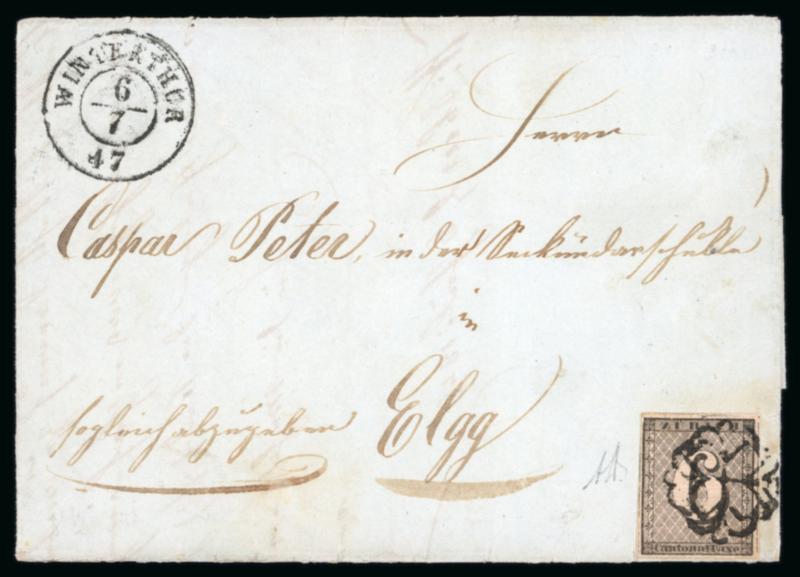 WINTERTHUR
6
7
47
Herrn
Caspar Peter, in der Seckundarschule
in
Elgg
sogleich abzugeben
ZÜRICH
6
Cantonal-Taxe